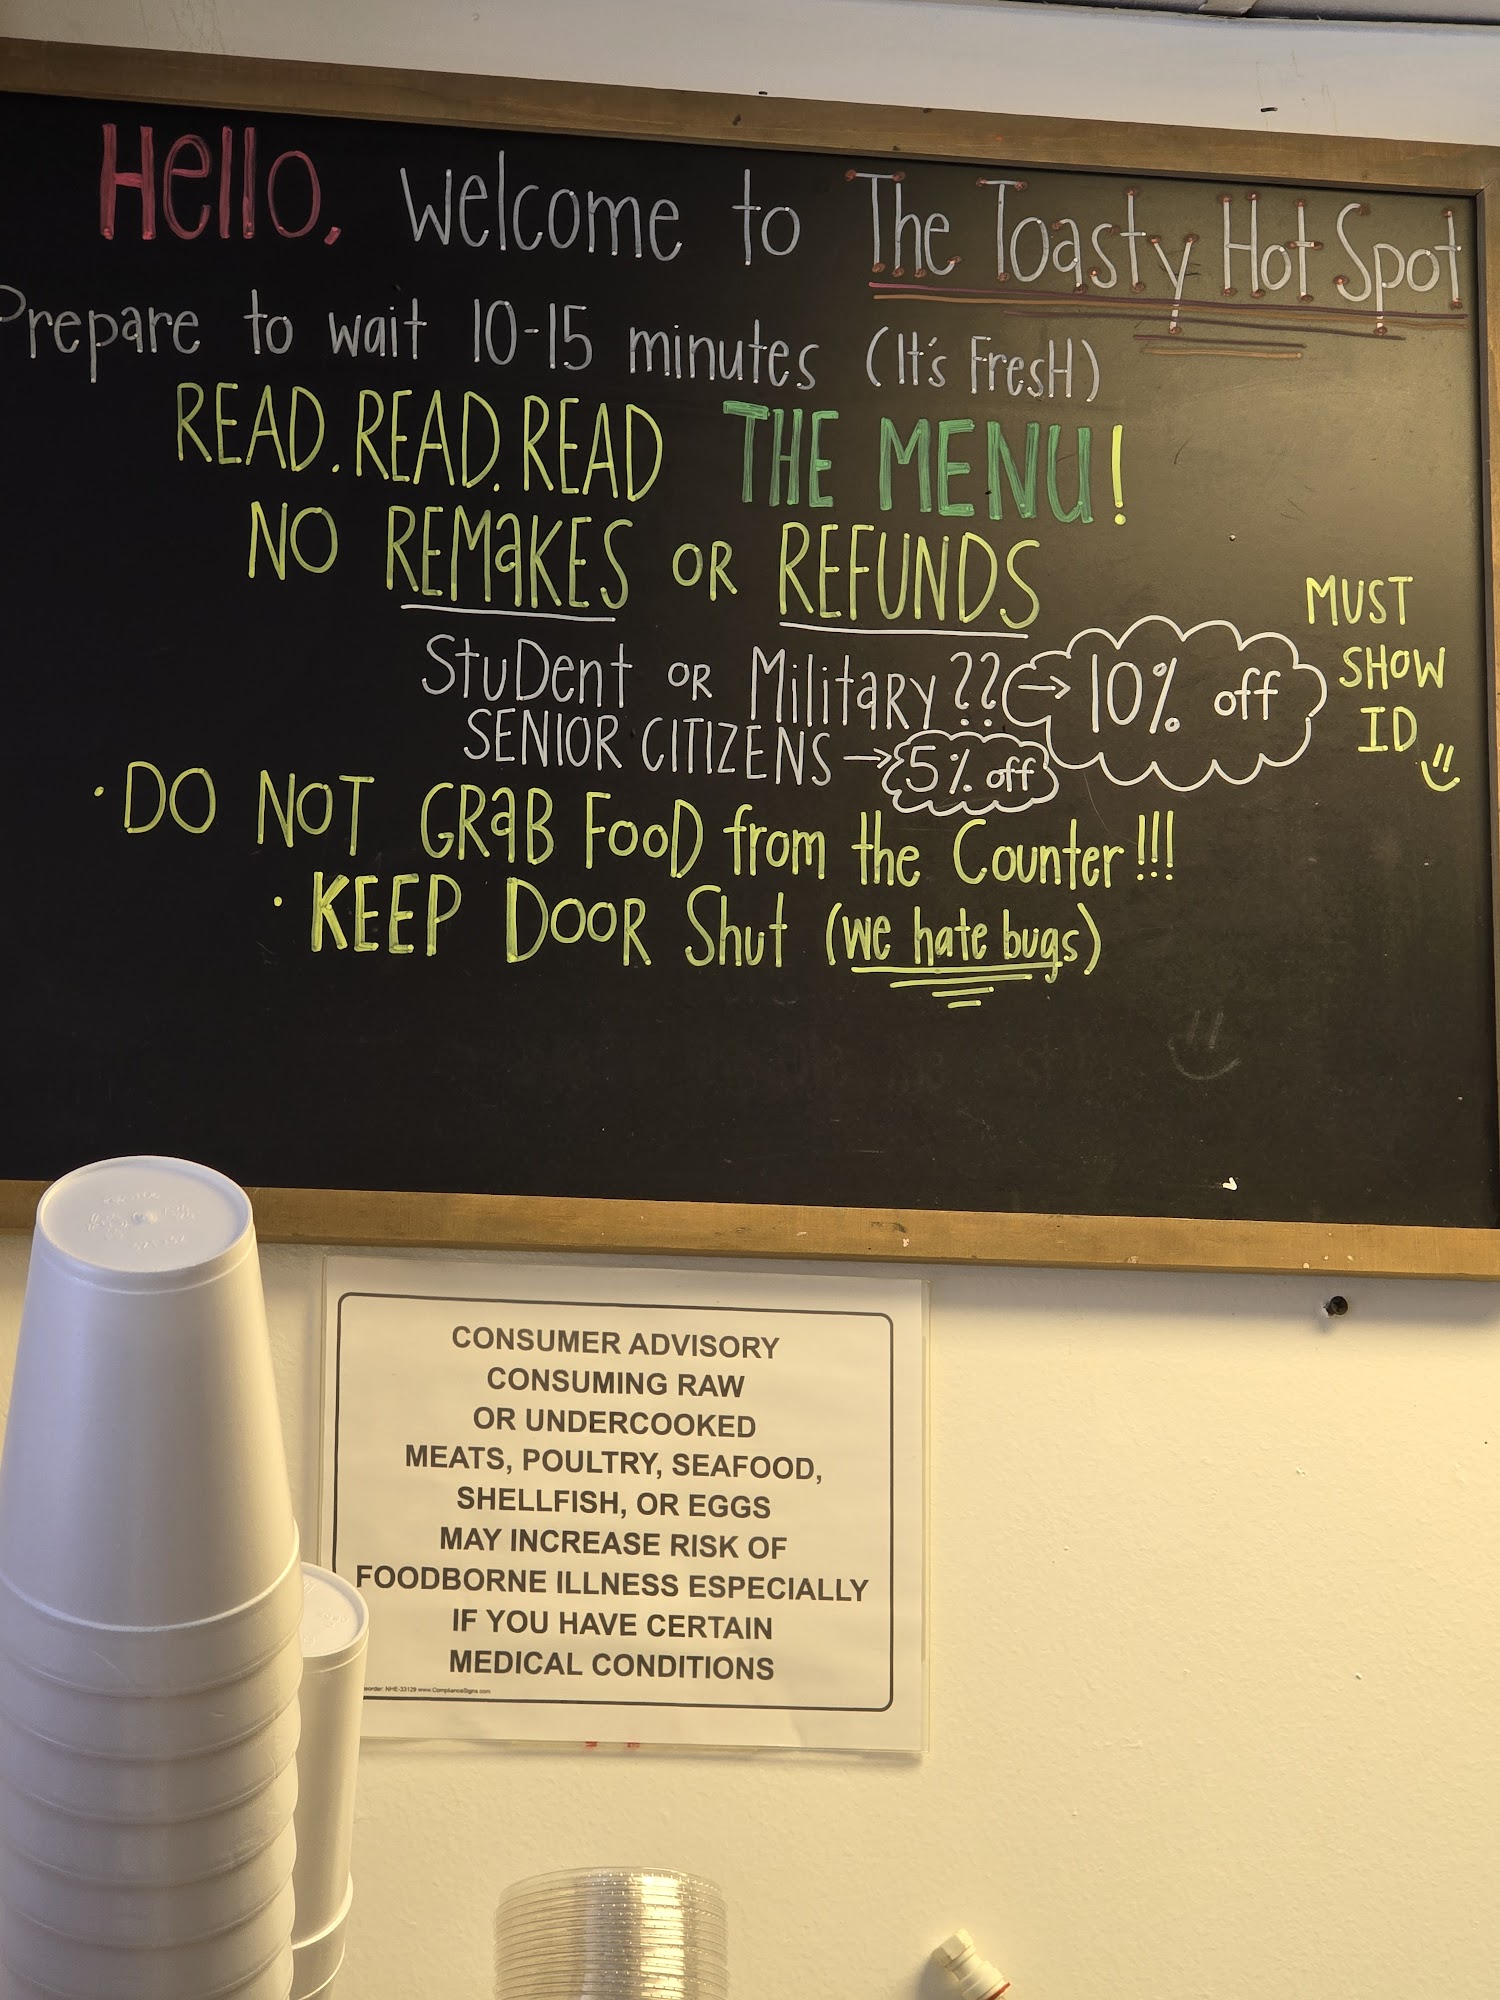 Hello, welcome to The Toasty Hot Spot
Prepare to wait 10-15 minutes (It's FresH)
READ. READ. READ THE MENU!
NO REMaKES OR REFUNDS
StuDent OR MilitaRY?? → 10% off
SENIOR CITIZENS → 5% off
MUST
SHOW
ID
· DO NOT GRaB FooD from the Counter!!!
· KEEP DOOR Shut (We hate bugs)
CONSUMER ADVISORY
CONSUMING RAW
OR UNDERCOOKED
MEATS, POULTRY, SEAFOOD,
SHELLFISH, OR EGGS
MAY INCREASE RISK OF
FOODBORNE ILLNESS ESPECIALLY
IF YOU HAVE CERTAIN
MEDICAL CONDITIONS
NHE-33129 www.ComplianceSigns.com